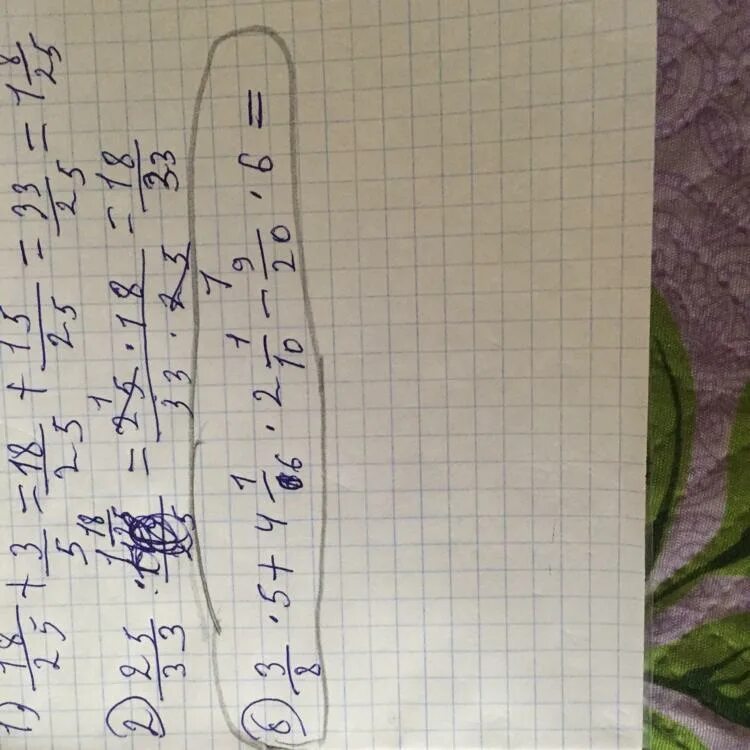 1) 18/25 + 3/5 = 18/25 + 15/25 = 33/25 = 1 8/25
2) 25/33 · 18/25 = 25 · 18/33 · 25 = 18/33
б) 3/8 · 5 + 4 1/6 · 2 1/10 - 9/20 · 6 =